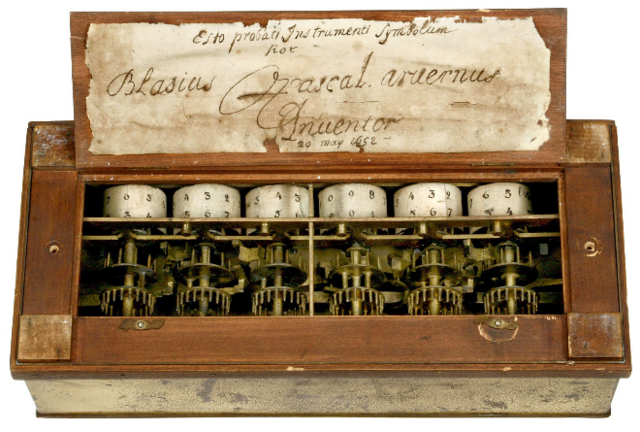 Esto probati Instrumenti Symbolum
hoc
Blasius Pascal. aruernus
Inventor
20 may 1652
4 3 2 4 3 0 9 8 4 3 2 6 5
5 6 7 5 6 7